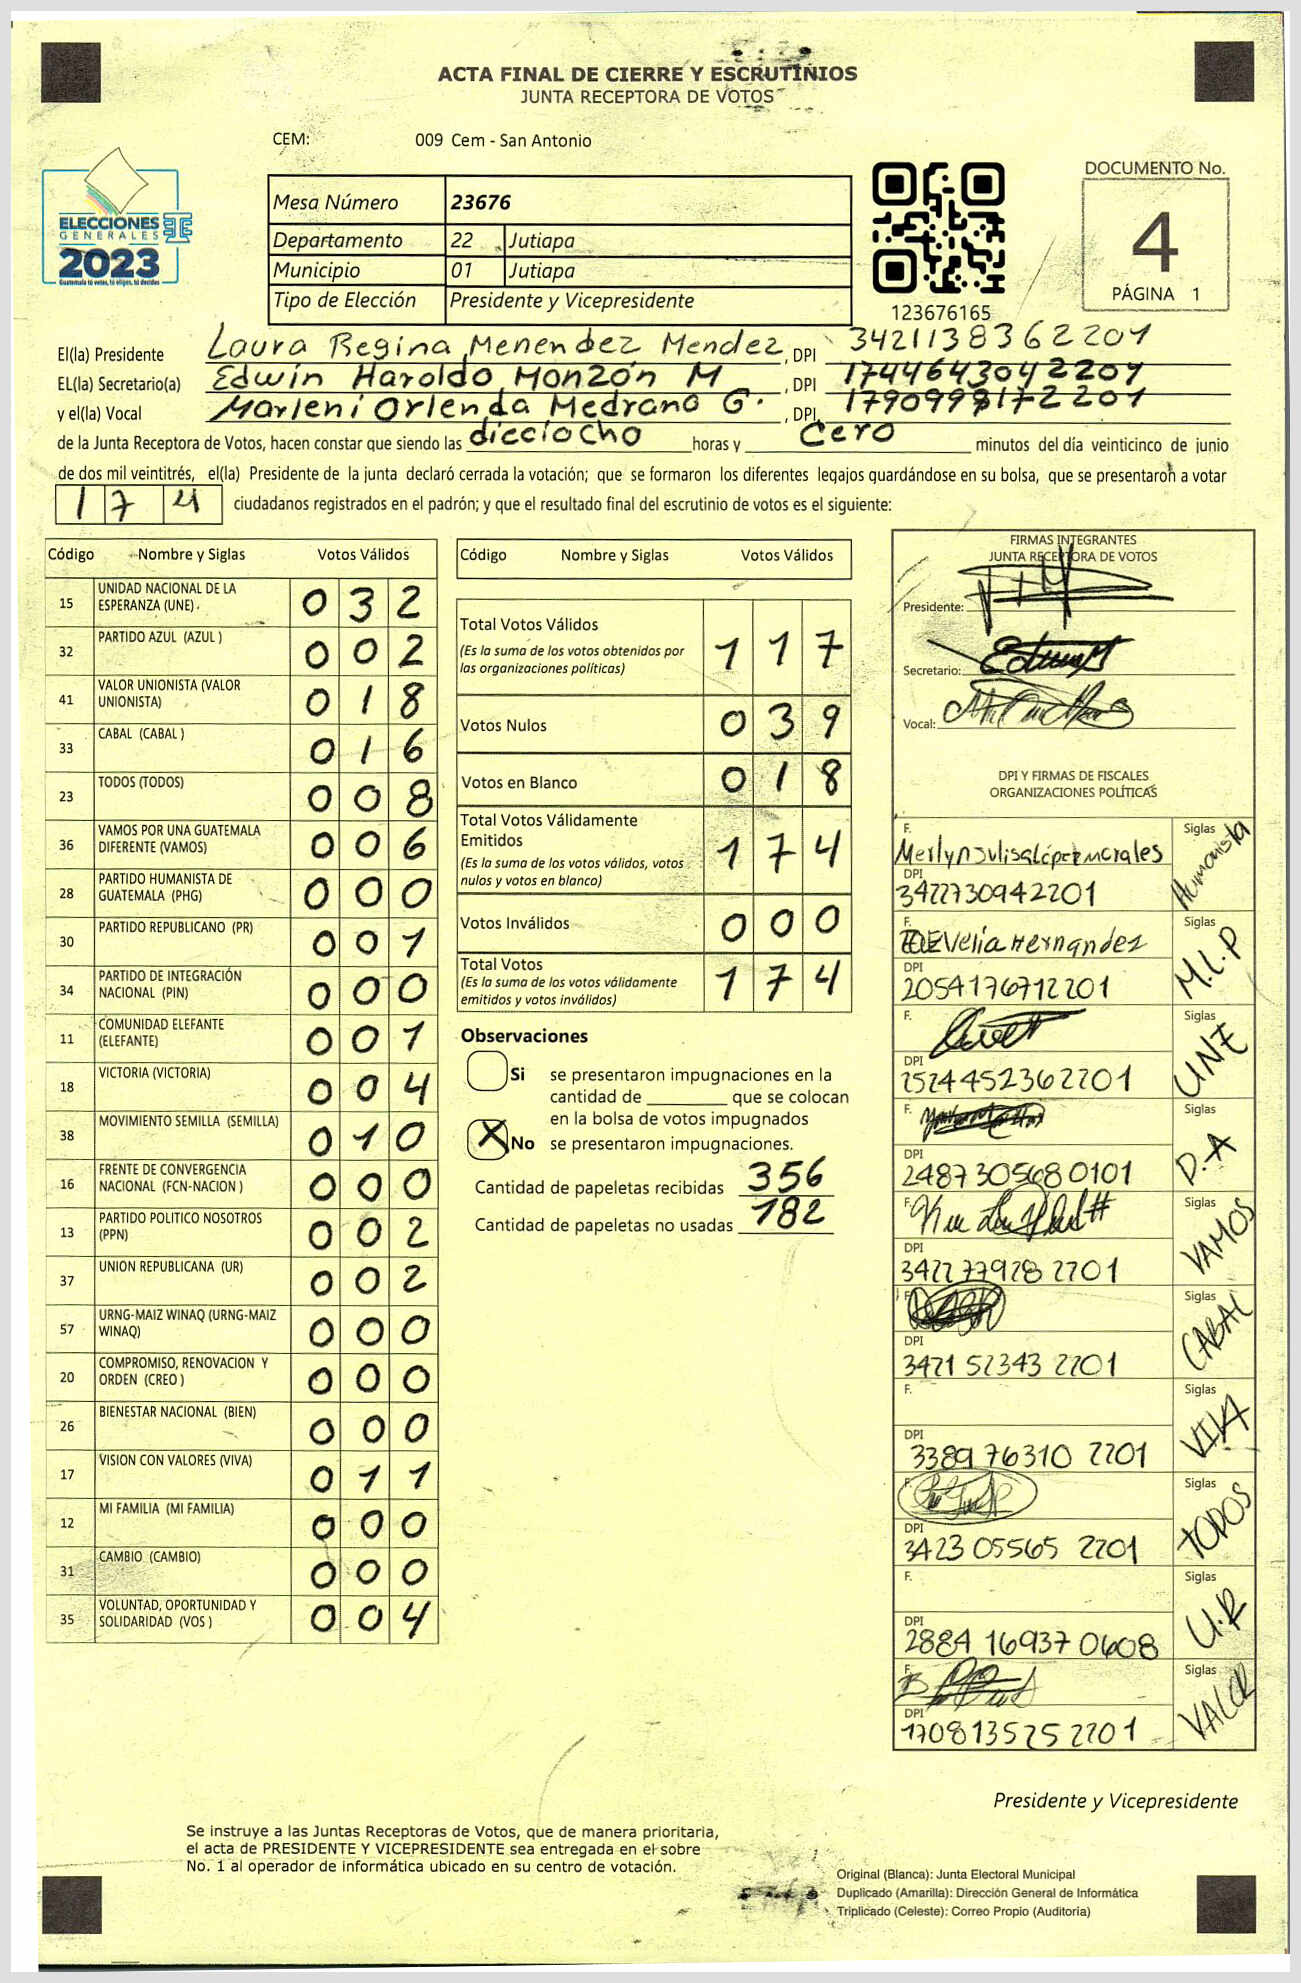 ACTA FINAL DE CIERRE Y ESCRUTINIOS
JUNTA RECEPTORA DE VOTOS
CEM: 009 Cem - San Antonio
ELECCIONES
GENERALES
2023
Guatemala tú votas, tú eliges, tú decides
Mesa Número 23676
Departamento 22 Jutiapa
Municipio 01 Jutiapa
Tipo de Elección Presidente y Vicepresidente
123676165
DOCUMENTO No.
4
PÁGINA 1
El(la) Presidente Laura Regina Menendez Mendez, DPI 3421138362201
EL(la) Secretario(a) Edwin Haroldo Monzón M, DPI 1744643042201
y el(la) Vocal Marleni Orlenda Medrano G., DPI, 1790998172201
de la Junta Receptora de Votos, hacen constar que siendo las diecciocho horas y Cero minutos del día veinticinco de junio
de dos mil veintitrés, el(la) Presidente de la junta declaró cerrada la votación; que se formaron los diferentes legajos guardándose en su bolsa, que se presentaron a votar
174 ciudadanos registrados en el padrón; y que el resultado final del escrutinio de votos es el siguiente:
Código Nombre y Siglas Votos Válidos
15 UNIDAD NACIONAL DE LA ESPERANZA (UNE) 032
32 PARTIDO AZUL (AZUL ) 002
41 VALOR UNIONISTA (VALOR UNIONISTA) 018
33 CABAL (CABAL ) 016
23 TODOS (TODOS) 008
36 VAMOS POR UNA GUATEMALA DIFERENTE (VAMOS) 006
28 PARTIDO HUMANISTA DE GUATEMALA (PHG) 000
30 PARTIDO REPUBLICANO (PR) 001
34 PARTIDO DE INTEGRACIÓN NACIONAL (PIN) 000
11 COMUNIDAD ELEFANTE (ELEFANTE) 001
18 VICTORIA (VICTORIA) 004
38 MOVIMIENTO SEMILLA (SEMILLA) 010
16 FRENTE DE CONVERGENCIA NACIONAL (FCN-NACION ) 000
13 PARTIDO POLITICO NOSOTROS (PPN) 002
37 UNION REPUBLICANA (UR) 002
57 URNG-MAIZ WINAQ (URNG-MAIZ WINAQ) 000
20 COMPROMISO, RENOVACION Y ORDEN (CREO ) 000
26 BIENESTAR NACIONAL (BIEN) 000
17 VISION CON VALORES (VIVA) 011
12 MI FAMILIA (MI FAMILIA) 000
31 CAMBIO (CAMBIO) 000
35 VOLUNTAD, OPORTUNIDAD Y SOLIDARIDAD (VOS ) 004
Código Nombre y Siglas Votos Válidos
Total Votos Válidos 117
(Es la suma de los votos obtenidos por
las organizaciones políticas)
Votos Nulos 039
Votos en Blanco 018
Total Votos Válidamente
Emitidos 174
(Es la suma de los votos válidos, votos
nulos y votos en blanco)
Votos Inválidos 000
Total Votos 174
(Es la suma de los votos válidamente
emitidos y votos inválidos)
Observaciones
Si se presentaron impugnaciones en la
cantidad de ________ que se colocan
en la bolsa de votos impugnados
X No se presentaron impugnaciones.
Cantidad de papeletas recibidas 356
Cantidad de papeletas no usadas 182
FIRMAS INTEGRANTES
JUNTA RECEPTORA DE VOTOS
Presidente:
Secretario:
Vocal:
DPI Y FIRMAS DE FISCALES
ORGANIZACIONES POLÍTICAS
F. Siglas Humanista
DPI 3422730942201
F. Evelia Hernandez Siglas M.L.P
DPI 2054176712201
F. Siglas UNE
DPI 2524452362201
F. Siglas D.A
DPI 2487305680101
F. Siglas VAMOS
DPI 3422 77928 2201
F. Siglas CABAL
DPI 3421 52343 2201
F. Siglas VIVA
DPI 3389 76310 2201
F. Siglas TODOS
DPI 3423 05565 2201
F. Siglas U.R
DPI 2884 16937 0608
F. Siglas VALOR
DPI 170813525 2201
Presidente y Vicepresidente
Se instruye a las Juntas Receptoras de Votos, que de manera prioritaria,
el acta de PRESIDENTE Y VICEPRESIDENTE sea entregada en el sobre
No. 1 al operador de informática ubicado en su centro de votación.
Original (Blanca): Junta Electoral Municipal
Duplicado (Amarilla): Dirección General de Informática
Triplicado (Celeste): Correo Propio (Auditoría)